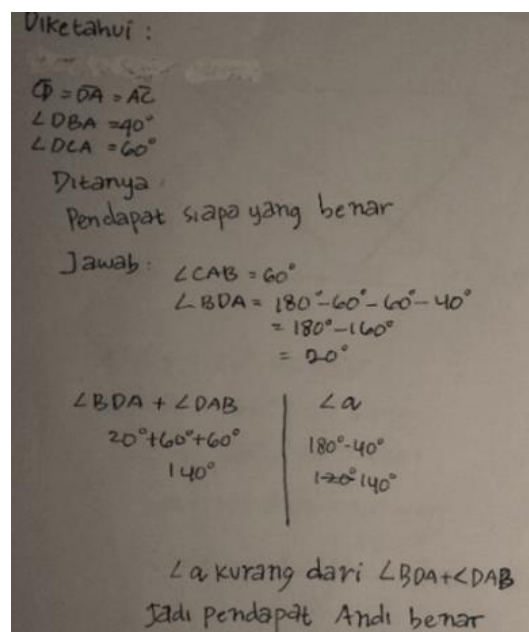 Diketahui :
CD = DA = AC
∠DBA = 40°
∠DCA = 60°
Ditanya :
Pendapat siapa yang benar
Jawab : ∠CAB = 60°
∠BDA = 180°-60°-60°-40°
= 180°-160°
= 20°
∠BDA + ∠DAB
20°+60°+60°
140°
∠a
180°-40°
120° 140°
∠a kurang dari ∠BDA+∠DAB
Jadi pendapat Andi benar